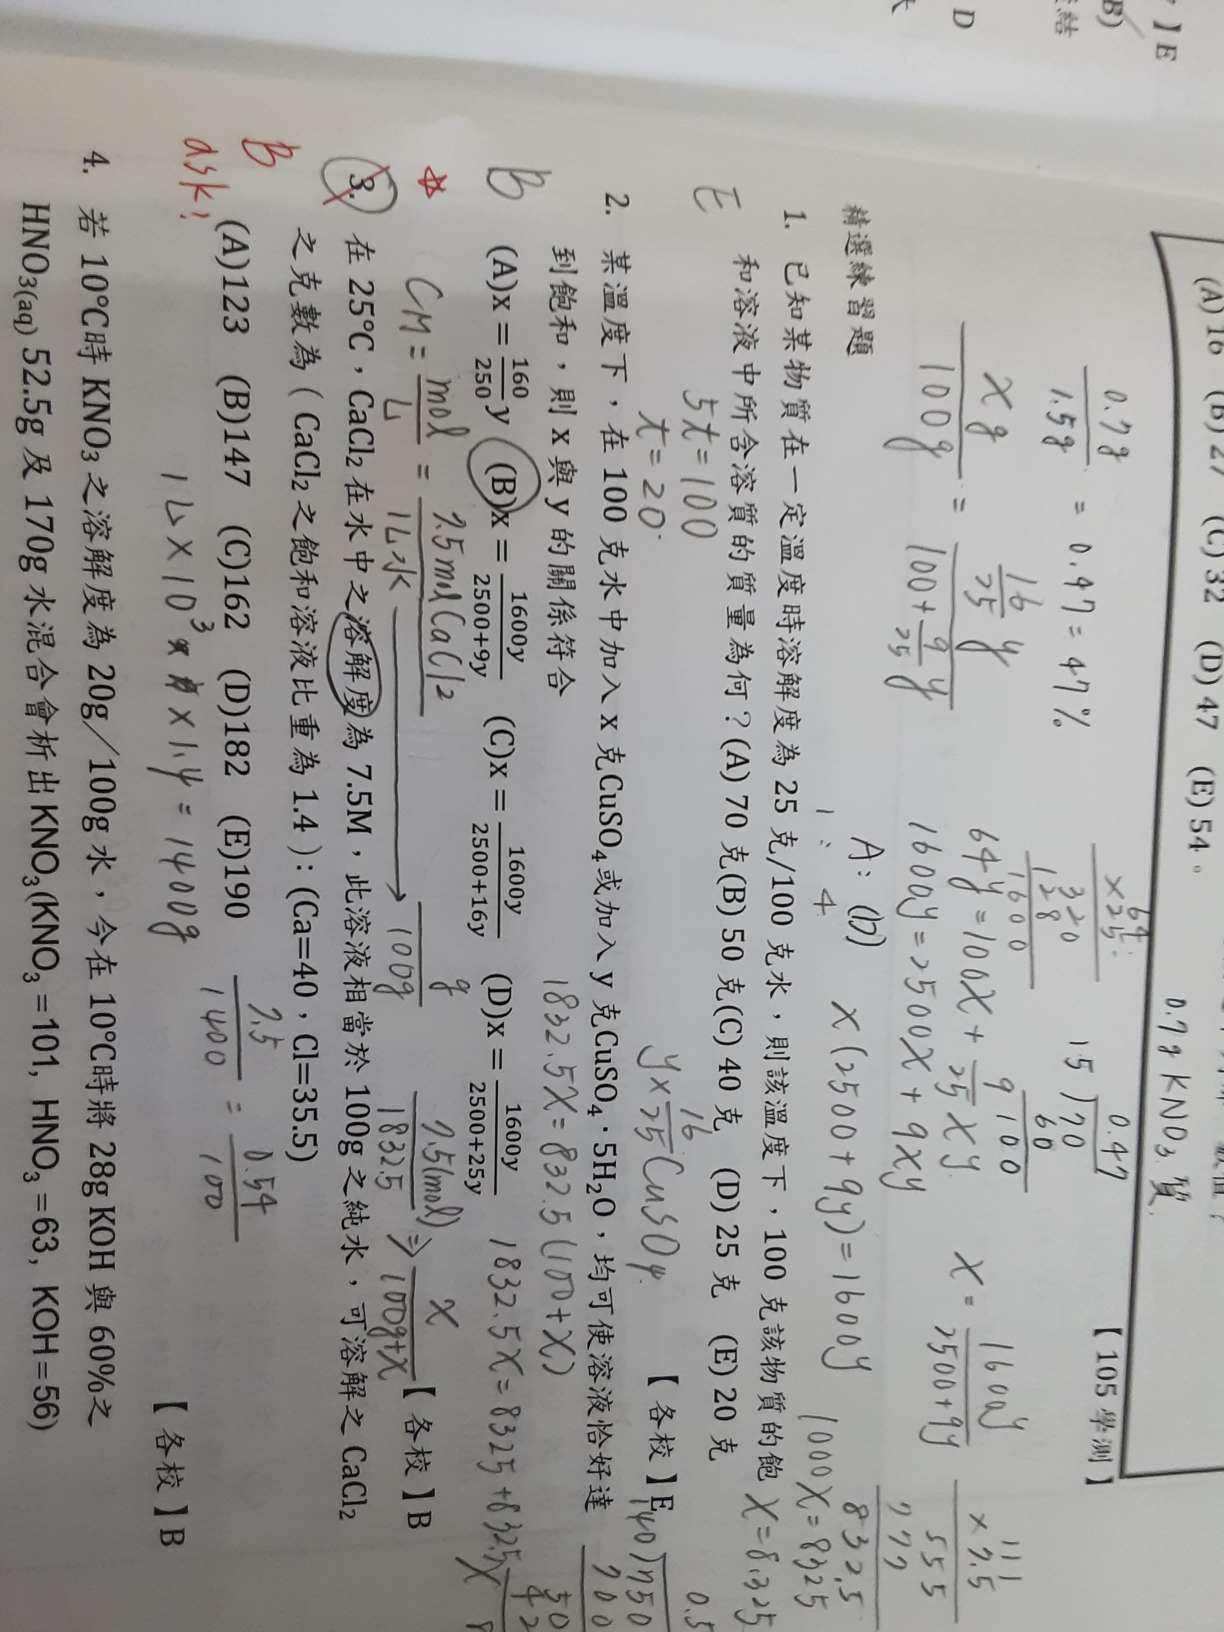 】E
B)
結
D
(A) 16 (B) 27 (C) 32 (D) 47 (E) 54。
【105 學測】
0.7g KNO3 質
0.7g / 1.5g = 0.47 = 47%
64
×25
320
128
1600
0.47
15)70
60
100
xg / 100g = 16/25 y / 100 + 9/25 y
64y = 100x + 9/25 xy
1600y = 2500x + 9xy
x = 1600y / 2500+9y
x(2500+9y) = 1600y
111
×7.5
555
777
832.5
精選練習題
A: (D)
1 : 4
1000x = 8325
x = 8.325
E
1. 已知某物質在一定溫度時溶解度為 25 克/100 克水，則該溫度下，100 克該物質的飽
和溶液中所含溶質的質量為何？(A) 70 克(B) 50 克(C) 40 克 (D) 25 克 (E) 20 克
【各校】E
5t = 100
t = 20
y × 16/25 CuSO4
B
2. 某溫度下，在 100 克水中加入 x 克CuSO4或加入 y 克CuSO4 · 5H2O，均可使溶液恰好達
到飽和，則 x 與 y 的關係符合
(A)x = 160/250 y (B)x = 1600y/2500+9y (C)x = 1600y/2500+16y (D)x = 1600y/2500+25y
【各校】B
1832.5x = 832.5(100+x)
1832.5x = 8325 + 832.5x
CM = mol / L = 7.5mol CaCl2 / 1L水 → g / 100g
7.5(mol) / 1832.5 ⇒ x / 100g+x
B
ask!
3. 在 25°C，CaCl2 在水中之溶解度為 7.5M，此溶液相當於 100g 之純水，可溶解之 CaCl2
之克數為（CaCl2 之飽和溶液比重為 1.4）：(Ca=40，Cl=35.5)
(A)123 (B)147 (C)162 (D)182 (E)190
【各校】B
7.5 / 1400 = 0.54 / 100
1L × 10³ × 1.4 = 1400g
4. 若 10°C時 KNO3 之溶解度為 20g／100g 水，今在 10°C時將 28g KOH 與 60%之
HNO3(aq) 52.5g 及 170g 水混合會析出KNO3(KNO3 =101, HNO3 =63, KOH=56)